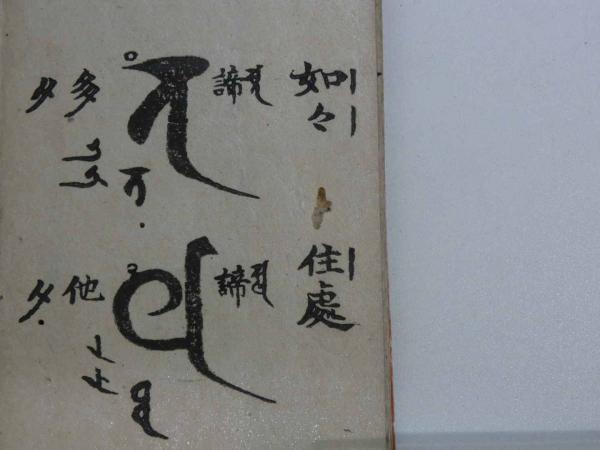 如々
諦
𑖝
多
タ
住處
諦
𑖞
他
タ